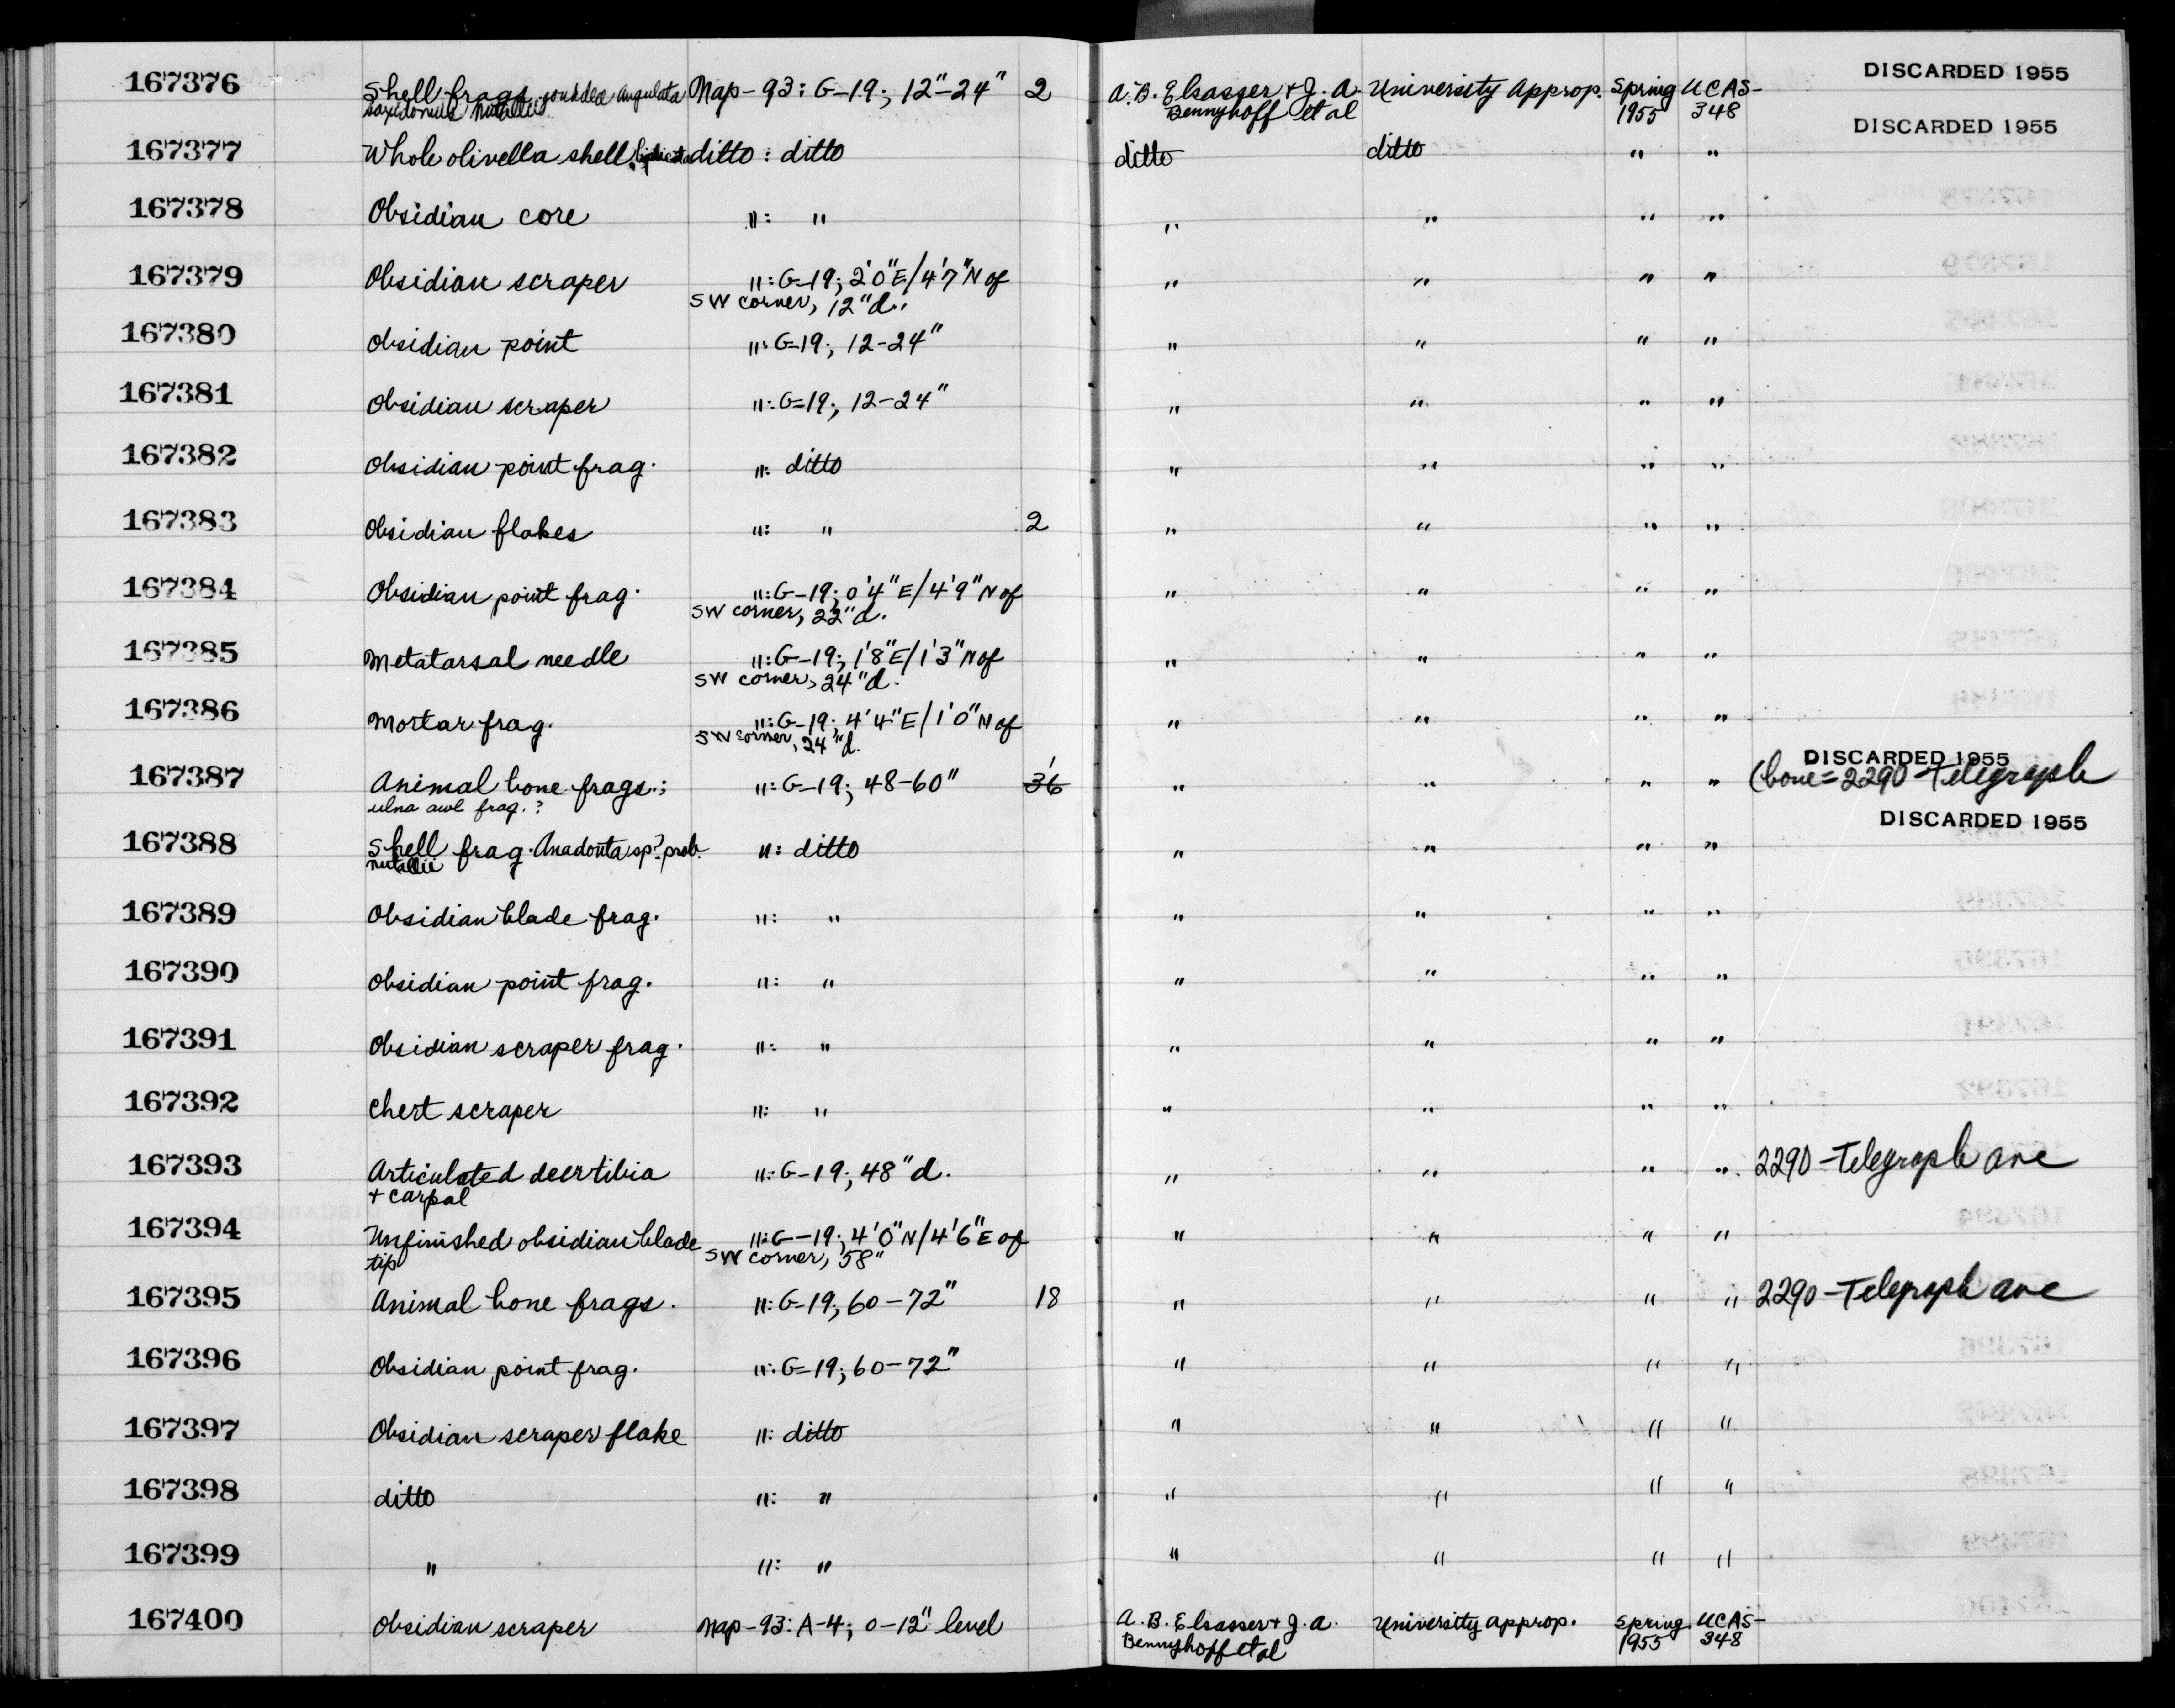 167376 Shell frags. Gonidea angulata Nap-93: G-19; 12"-24" 2 A. B. Elsasser + J. A. University Approp. Spring UCAS- DISCARDED 1955
saxidomus nutallii Bennyhoff et al 1955 348
DISCARDED 1955
167377 Whole olivella shell, biplicata ditto : ditto ditto ditto " "
167378 Obsidian core ": " " " " "
167379 Obsidian scraper ": G-19; 2'0"E/4'7"N of " " " "
SW corner, 12"d.
167380 Obsidian point ": G-19; 12-24" " " " "
167381 Obsidian scraper ": G-19; 12-24" " " " "
167382 Obsidian point frag. ": ditto " " " "
167383 Obsidian flakes ": " 2 " " " "
167384 Obsidian point frag. ": G-19; 0'4"E/4'9"N of " " " "
SW corner, 22"d.
167385 Metatarsal needle ": G-19; 1'8"E/1'3"N of " " " "
SW corner, 24"d.
167386 Mortar frag. ": G-19; 4'4"E/1'0"N of " " " "
SW corner, 24"d.
DISCARDED 1955
167387 Animal bone frags.; ": G-19; 48-60" 36 " " " " (bone=2290-Telegraph
ulna awl frag.?
DISCARDED 1955
167388 Shell frag. Anadonta sp? prob. ": ditto " " " "
nutallii
167389 Obsidian blade frag. ": " " " " "
167390 Obsidian point frag. ": " " " " "
167391 Obsidian scraper frag. ": " " " " "
167392 Chert scraper ": " " " " "
167393 Articulated deer tibia ": G-19; 48"d. " " " " 2290-Telegraph ave
+ carpal
167394 Unfinished obsidian blade ": G-19; 4'0"N/4'6"E of " " " "
tip SW corner, 58"
167395 Animal bone frags. ": G-19; 60-72" 18 " " " " 2290-Telegraph ave
167396 Obsidian point frag. ": G-19; 60-72" " " " "
167397 Obsidian scraper flake ": ditto " " " "
167398 ditto ": " " " " "
167399 " ": " " " " "
167400 Obsidian scraper Nap-93: A-4; 0-12" level A. B. Elsasser + J. A. University approp. Spring UCAS-
Bennyhoff et al 1955 348